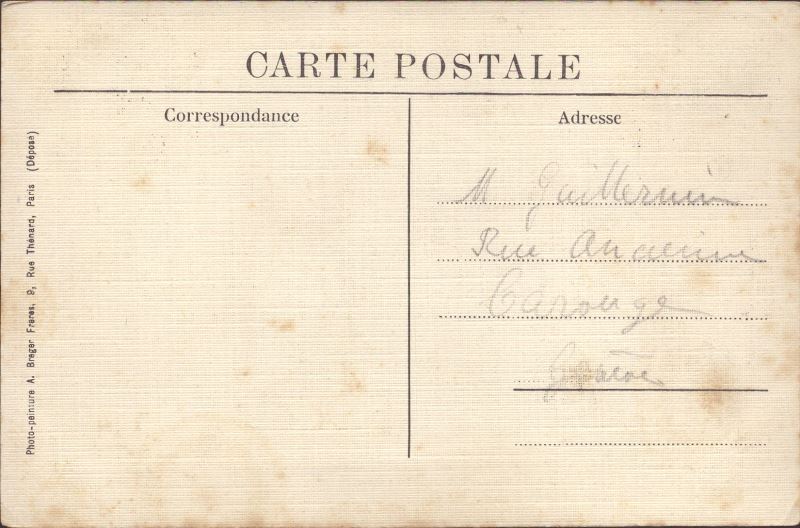 CARTE POSTALE
Correspondance
Adresse
M Guillermin
Rue Ancienne
Carouge
Genève
Photo-peinture A. Breger Freres, 9, Rue Thénard, Paris (Déposé)